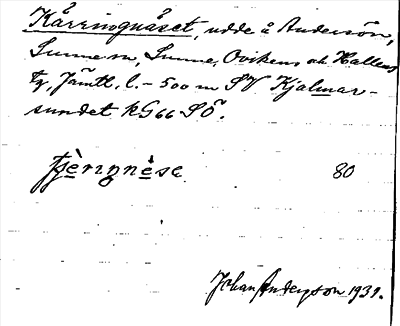 Kärringnäset, udde å Andersön,
Sunne sn, Sunne, Ovikens och Hallens
tg, Jämtl. l. - 500 m SV Hjälmar-
sundet kG66 SÖ.
80
Johan Anderson 1939.